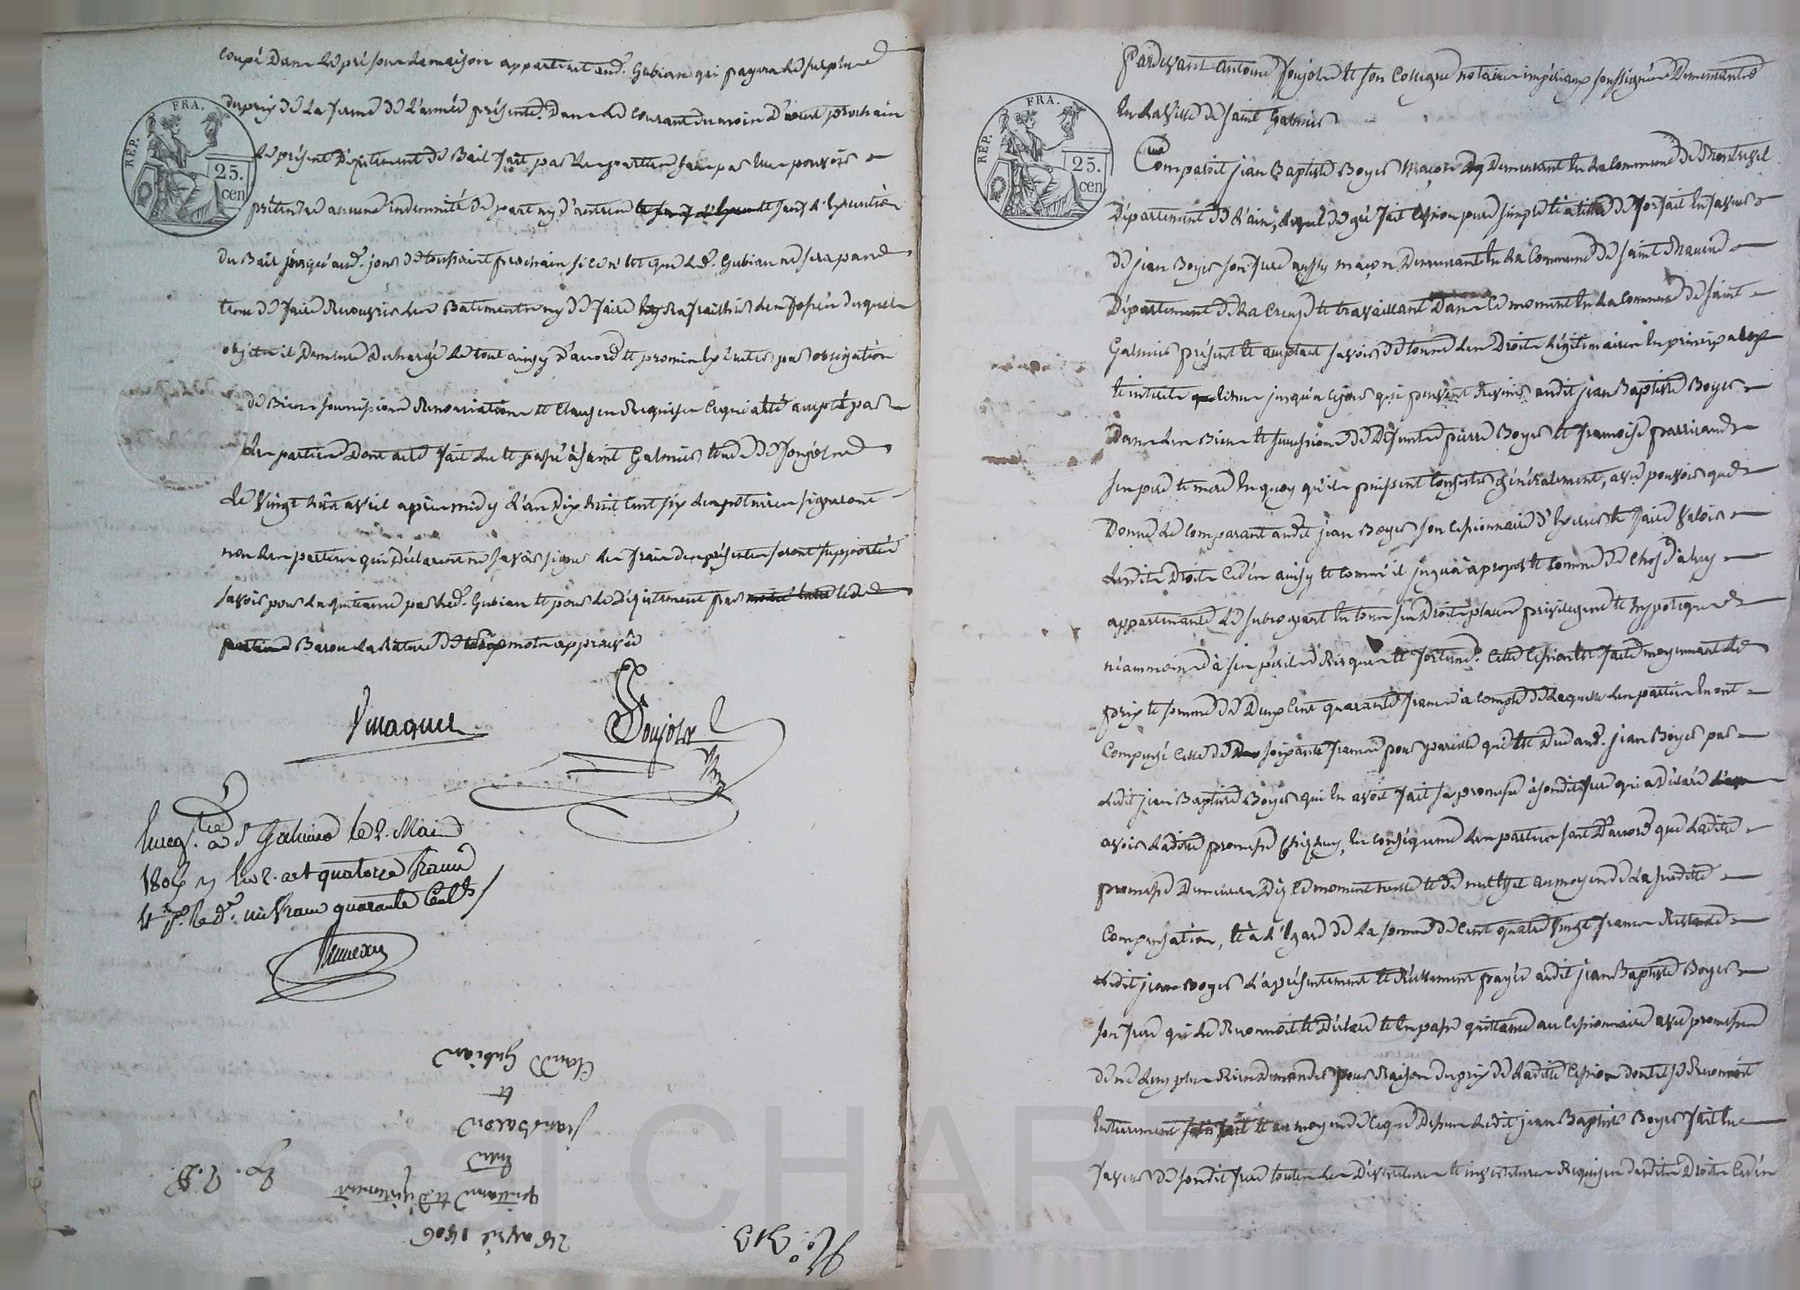 coupé dans le pré sous la maison appartenant aud. Gubian qui payera le surplus
du prix de la ferme de l'année présente dans le courant du mois d'aout prochain
le présent département de Bail fait par les parties sans pas leur pouvoir
prétendre aucune indemnité de part ny d'autre et sauf l'exécution
du Bail jusqu'aud. jour de toussaint prochain si ce n'est que led. Gubian ne sera pas
tenu de faire recouvrir les Batiments ny de faire les fossés duquel
objet il demeure dechargé le tout ainsy d'accord et promis exécuter par obligation
de Biens soumissions Renonciations et clauses Requises ce qui a été accepté par
les parties dont acte fait lu et passé à Saint Galmier etude de Poujol
le vingt huit avril après midy l'an dix huit cent six les notaires signeront
non les parties qui déclarent ne savoir signer les frais des présentes seront supportés
savoir pour la quittance par led. Gubian et pour le département par
Baron la Rature de mots approuvée
FRA.
REP.
25.
cen
Poujol
Enreg. à St Galmier le 2. Mai
1806 quatorze francs
R. d. un franc quarante cent.
28 avril 1806
quittance et département
entre
jean baron
et
Claude Gubian
No. 313
Pardevant Antoine Poujol et son collegue notaires impériaux soussignés demeurants
en la ville de Saint Galmier
Comparoit jean Baptiste Boyer maçon demeurant en la commune de Montluel
département de l'ain, lequel de gré fait cession pure simple et à titre de forfait en faveur
de jean Boyer son frère aussy maçon demeurant en la commune de Saint
département de la Creuse et travaillant dans ce moment en la commune de Saint
Galmier présent et acceptant savoir de tous les droits légitimaires en principal
et intérêts echus jusqu'à ce jour qui peuvent revenir audit jean Baptiste Boyer
dans les Biens et successions de défunts pierre Boyer et françoise
ses père et mère en quoy qu'ils puissent consister généralement, avec pouvoir que
donne le comparant audit jean Boyer son cessionnaire d'exercer et faire valoir
lesdits droits cédés ainsy et comme il jugera à propos et comme de chose à luy
appartenante le subrogeant en tous ses droits places privileges et hypoteques
néanmoins à ses périls Risques et fortune. Cette cession est faite moyennant le
prix et somme de deux cent quarante francs à compte de laquelle les parties en ont
compensé celle de soixante francs pour pareille qui est due aud. jean Boyer par
ledit jean Baptiste Boyer qui en avoit fait sa promesse à sondit frère qui a déclaré
avoir ladite promesse chez luy, en conséquence les parties sont d'accord que ladite
promesse demeure dès ce moment nulle et de nul effet au moyen de la susdite
compensation, et à l'egard de la somme de cent quatre vingt francs restante
ledit jean Boyer l'a présentement et réellement payée audit jean Baptiste Boyer
son frère qui le reconnoit et déclare et en passe quittance au cessionnaire avec promesse
de ne luy plus Rien demander pour Raison du prix de ladite cession dont il se reconnoit
entierement satisfait et au moyen de ce que dessus ledit jean Baptiste Boyer fait en
faveur de sondit frère toutes les dévestitures et investitures Requises desdits droits cédés
Pascal CHAREYRON